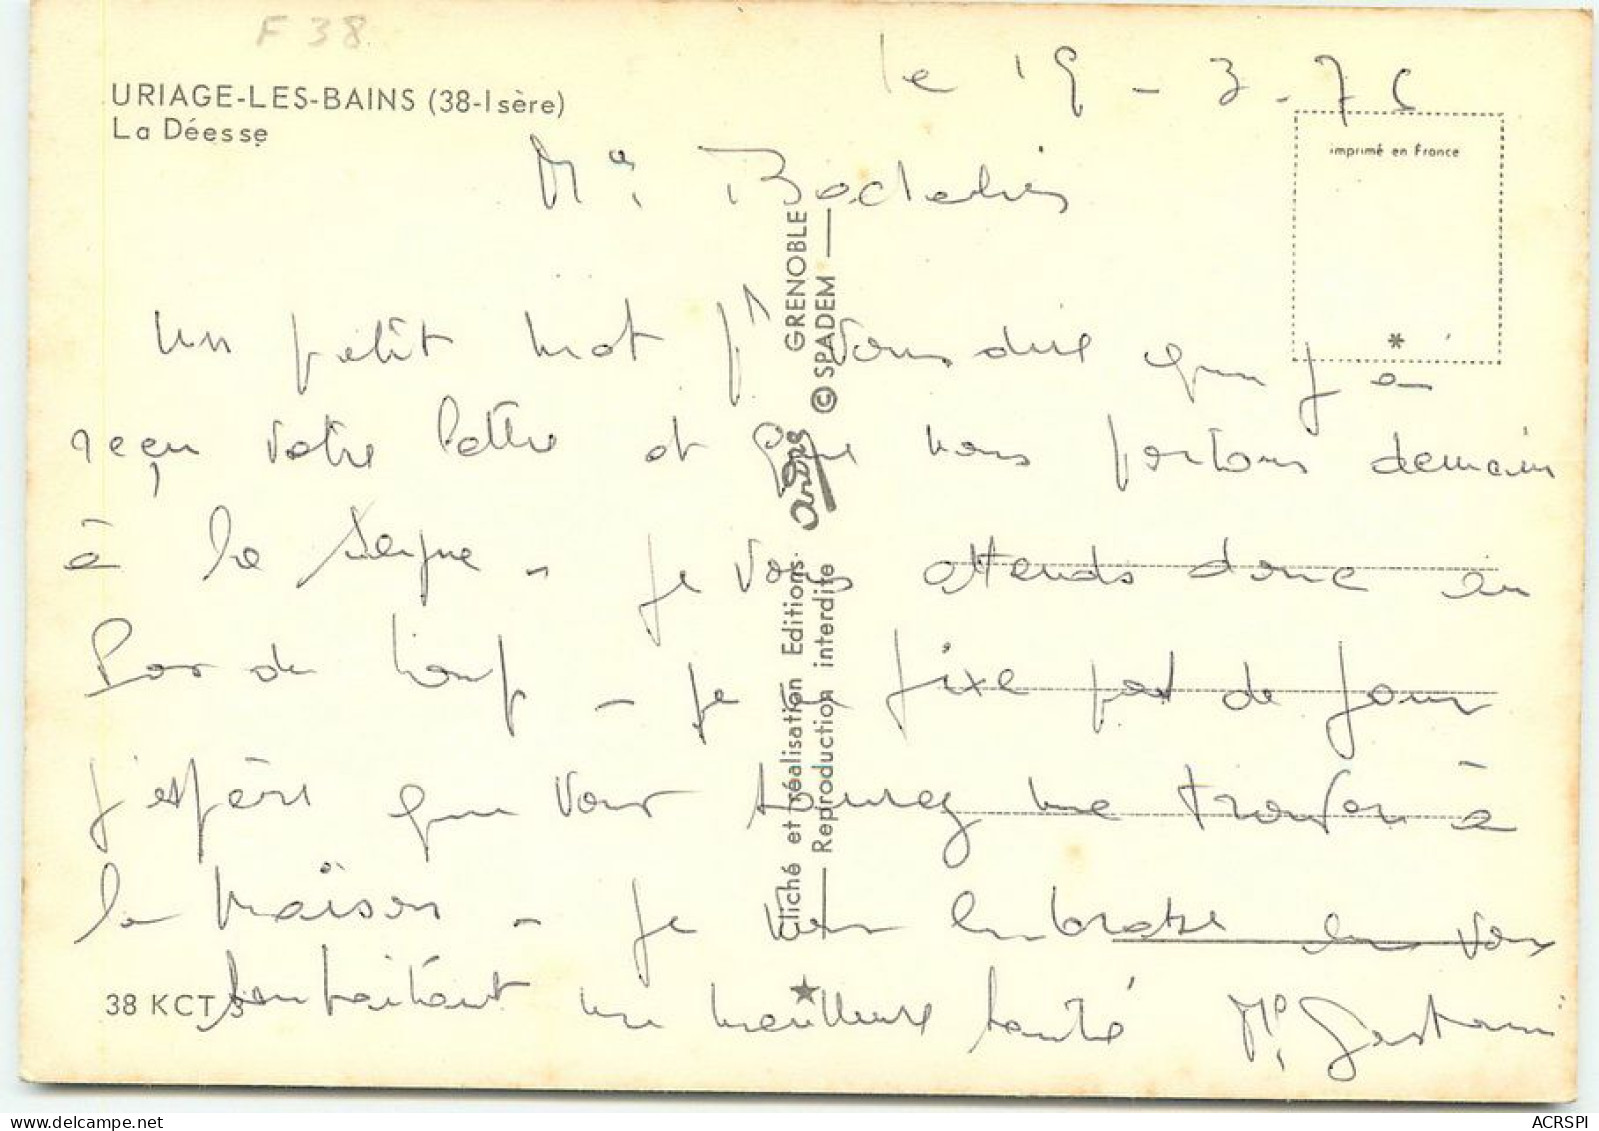 F 38
URIAGE-LES-BAINS (38-Isère)
La Déesse
le 19-3-76
imprimé en France
*
Un petit mot pr vous dire que j'ai
reçu votre lettre et que nous partons demain
à la - je vous attends donc en
- je ne fixe pas de jour
j'espère que vous saurez me trouver à
la maison - je vous embrasse en vous
souhaitant une meilleure santé
38 KCT 3
Cliché et réalisation Editions andré GRENOBLE
Reproduction interdite © SPADEM
ACRSPI